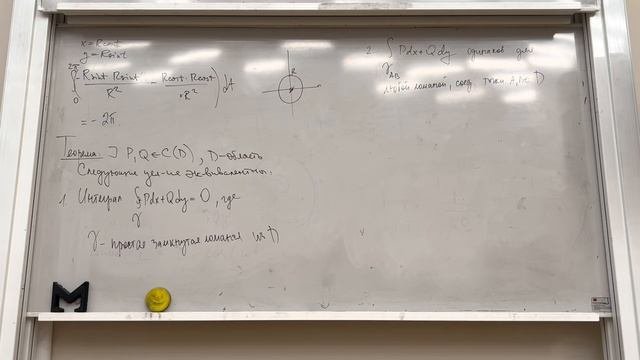 x = R cos t
y = R sin t
∫₀^{2π} ( (R sin t · R sin t)/R² - (R cos t · R cos t)/R² ) dt
= -2π.
R
Теорема. ∃ P, Q ∈ C(D), D-область
Следующие эквивалентны.
1. Интеграл ∮_γ Pdx + Qdy = 0, где
γ - простая замкнутая ломаная из D
2. ∫_{γ_AB} Pdx + Qdy одинаков для
любой ломаной, соед. точки A, B ∈ D